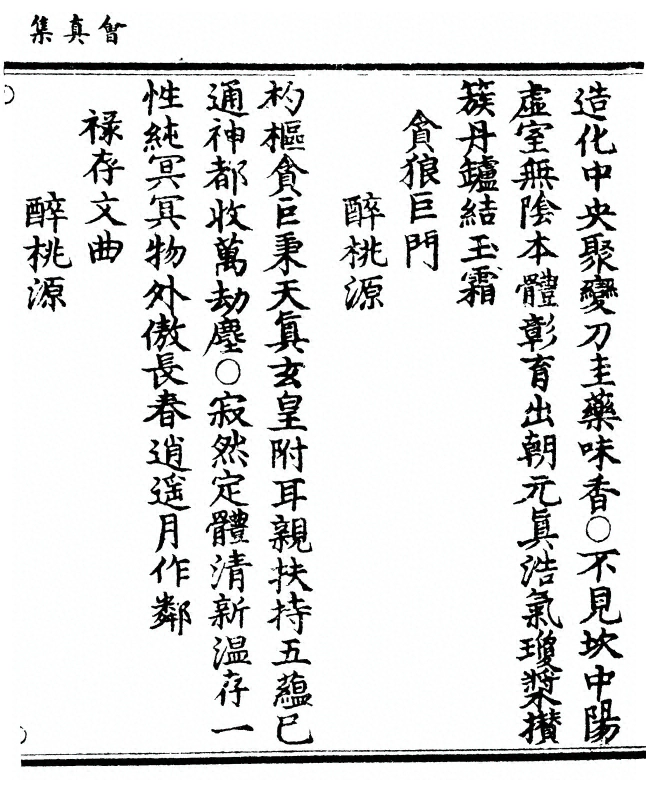 會真集
造化中央聚變刀圭藥味香○不見坎中陽
虛室無陰本體彰育出朝元真浩氣瓊漿攢
簇丹鑪結玉霜
貪狼巨門
醉桃源
杓樞貪巨秉天真玄皇附耳親扶持五蘊已
通神都收萬劫塵○寂然定體清新温存一
性純冥冥物外傲長春逍遥月作鄰
祿存文曲
醉桃源